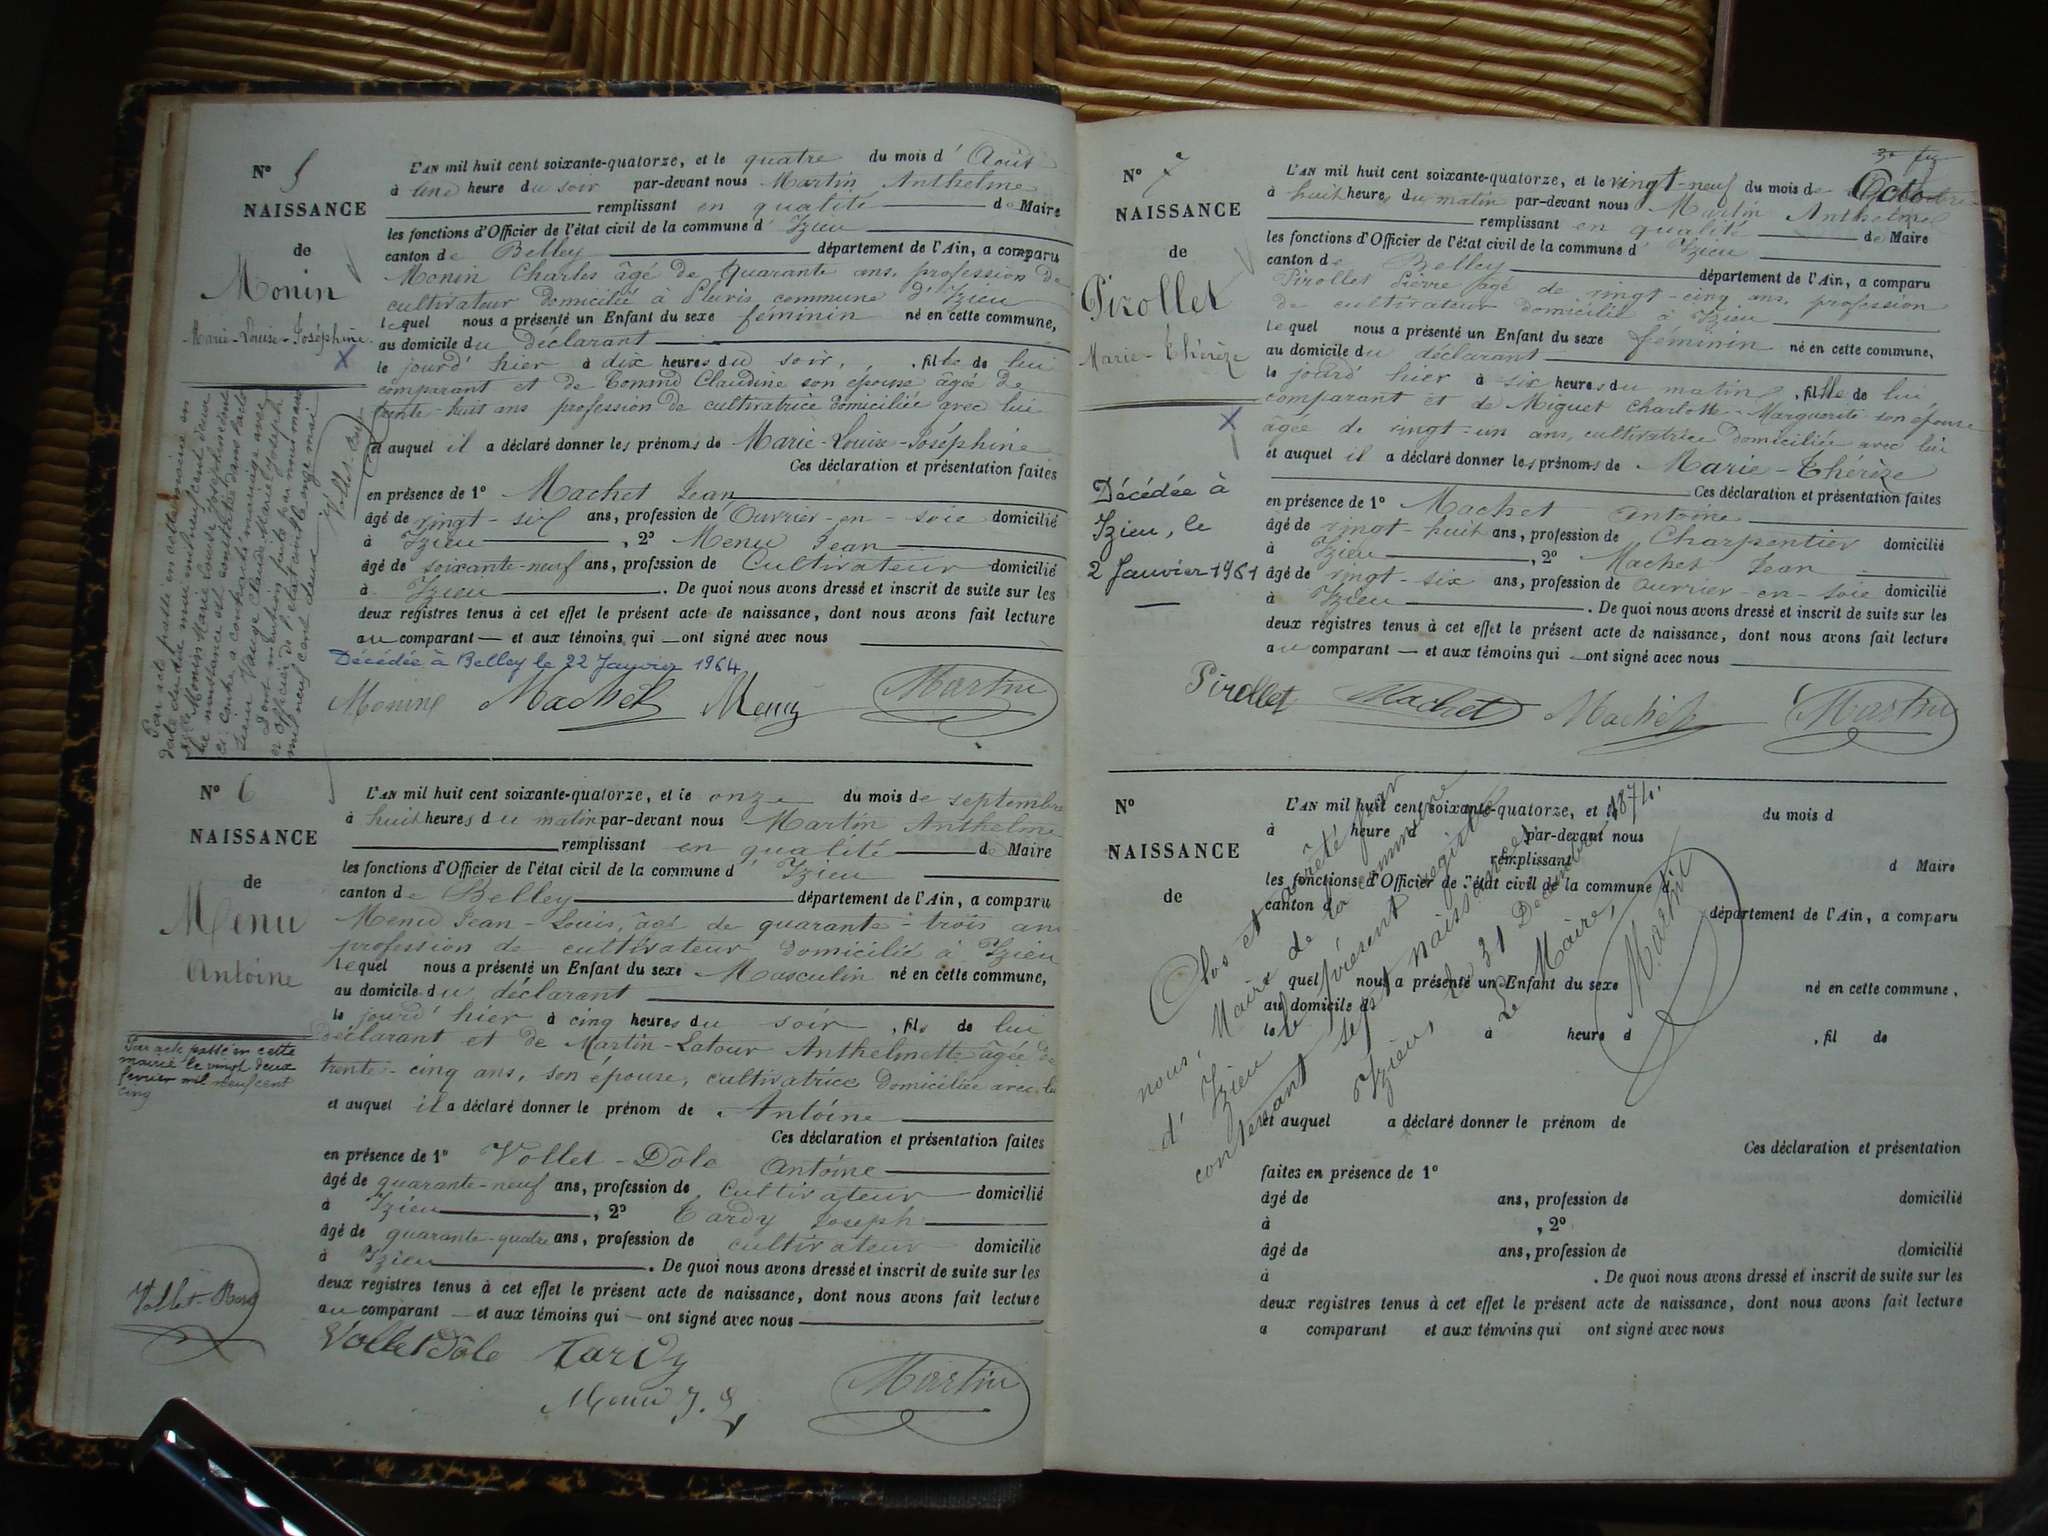 N° 5
NAISSANCE
de
Monin
Marie-Louise-Joséphine
X
L'AN mil huit cent soixante-quatorze, et le quatre du mois d'Août
à une heure du soir par-devant nous Martin Anthelme
remplissant en qualité de Maire
les fonctions d'Officier de l'état civil de la commune d'Izieu
canton de Belley département de l'Ain, a comparu
Monin Charles âgé de quarante ans, profession de
cultivateur domicilié à commune d'Izieu
lequel nous a présenté un Enfant du sexe féminin né en cette commune,
au domicile du déclarant
le jourd'hier à dix heures du soir, fille de lui
comparant et de Claudine son épouse âgée de
trente-huit ans profession de cultivatrice domiciliée avec lui
et auquel il a déclaré donner les prénoms de Marie-Louise-Joséphine
Ces déclaration et présentation faites
en présence de 1° Machet Jean
âgé de vingt-six ans, profession de Ouvrier-en-soie domicilié
à Izieu, 2° Menu Jean
âgé de soixante-neuf ans, profession de Cultivateur domicilié
à Izieu. De quoi nous avons dressé et inscrit de suite sur les
deux registres tenus à cet effet le présent acte de naissance, dont nous avons fait lecture
au comparant et aux témoins qui ont signé avec nous
Décédée à Belley le 22 Janvier 1964
Monin Machet Menu Martin
Par acte passé en cette mairie en
date du dix mai mil neuf cent deux
Monin Marie Louise Joséphine dont
la naissance est constatée dans l'acte
ci-contre, a contracté mariage avec
sieur Claude Marie Joseph
Dont mention faite par nous maire
et officier de l'état civil le onze mai
mil neuf cent deux
N° 6
NAISSANCE
de
Menu
Antoine
L'AN mil huit cent soixante-quatorze, et le onze du mois de septembre
à huit heures du matin par-devant nous Martin Anthelme
remplissant en qualité de Maire
les fonctions d'Officier de l'état civil de la commune d'Izieu
canton de Belley département de l'Ain, a comparu
Menu Jean-Louis, âgé de quarante-trois ans
profession de cultivateur domicilié à Izieu
lequel nous a présenté un Enfant du sexe Masculin né en cette commune,
au domicile du déclarant
le jourd'hier à cinq heures du soir, fils de lui
déclarant et de Martin-Latour Anthelmette âgée de
trente-cinq ans, son épouse, cultivatrice domiciliée avec lui
et auquel il a déclaré donner le prénom de Antoine
Ces déclaration et présentation faites
en présence de 1° Vollet-Dôle Antoine
âgé de quarante-neuf ans, profession de Cultivateur domicilié
à Izieu, 2° Tardy Joseph
âgé de quarante-quatre ans, profession de cultivateur domicilié
à Izieu. De quoi nous avons dressé et inscrit de suite sur les
deux registres tenus à cet effet le présent acte de naissance, dont nous avons fait lecture
au comparant et aux témoins qui ont signé avec nous
Vollet Dôle Tardy
Menu J. L Martin
Par acte passé en cette
mairie le vingt deux
février mil neuf cent
cinq
N° 7
NAISSANCE
de
Pirollet
Marie-Thérèze
X
Décédée à
Izieu, le
2 Janvier 1961
L'AN mil huit cent soixante-quatorze, et le vingt-neuf du mois de Octobre
à huit heures du matin par-devant nous Martin Anthelme
remplissant en qualité de Maire
les fonctions d'Officier de l'état civil de la commune d'Izieu
canton de Belley département de l'Ain, a comparu
Pirollet Pierre âgé de vingt-cinq ans, profession
de cultivateur domicilié à Izieu
lequel nous a présenté un Enfant du sexe féminin né en cette commune,
au domicile du déclarant
le jourd'hier à six heures du matin, fille de lui
comparant et de Miguet Charlotte-Marguerite son épouse
âgée de vingt-un ans, cultivatrice domiciliée avec lui
et auquel il a déclaré donner les prénoms de Marie-Thérèze
Ces déclaration et présentation faites
en présence de 1° Machet Antoine
âgé de vingt-huit ans, profession de Charpentier domicilié
à Izieu, 2° Machet Jean
âgé de vingt-six ans, profession de ouvrier-en-soie domicilié
à Izieu. De quoi nous avons dressé et inscrit de suite sur les
deux registres tenus à cet effet le présent acte de naissance, dont nous avons fait lecture
au comparant et aux témoins qui ont signé avec nous
Pirollet Machet Machet Martin
N°
NAISSANCE
de
L'AN mil huit cent soixante-quatorze, et le du mois d
à heure d par-devant nous
remplissant d Maire
les fonctions d'Officier de l'état civil de la commune d
canton d département de l'Ain, a comparu
quel nous a présenté un Enfant du sexe né en cette commune,
au domicile d
le à heure d , fil de
et auquel a déclaré donner le prénom de
Ces déclaration et présentation
faites en présence de 1°
âgé de ans, profession de domicilié
à , 2°
âgé de ans, profession de domicilié
à . De quoi nous avons dressé et inscrit de suite sur les
deux registres tenus à cet effet le présent acte de naissance, dont nous avons fait lecture
a comparant et aux témoins qui ont signé avec nous
Clos et arrêté par
nous, Maire de la commune
d'Izieu le présent registre
contenant sept naissances
Izieu, le 31 Décembre 1874.
Le Maire,
Martin